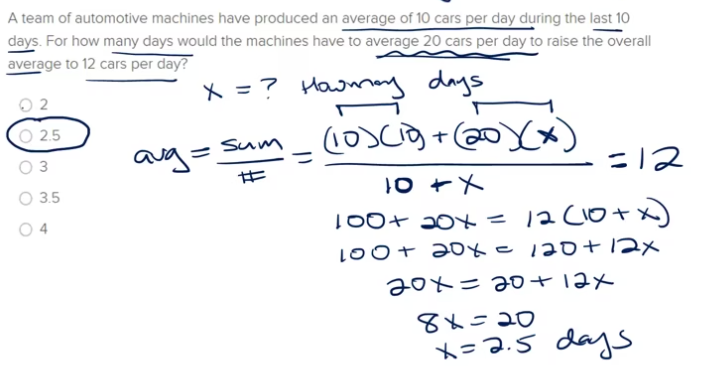 A team of automotive machines have produced an average of 10 cars per day during the last 10
days. For how many days would the machines have to average 20 cars per day to raise the overall
average to 12 cars per day?
x = ? How many days
2
2.5
3
3.5
4
avg = sum / # = (10)(10) + (20)(x) / 10 + x = 12
100 + 20x = 12(10 + x)
100 + 20x = 120 + 12x
20x = 20 + 12x
8x = 20
x = 2.5 days